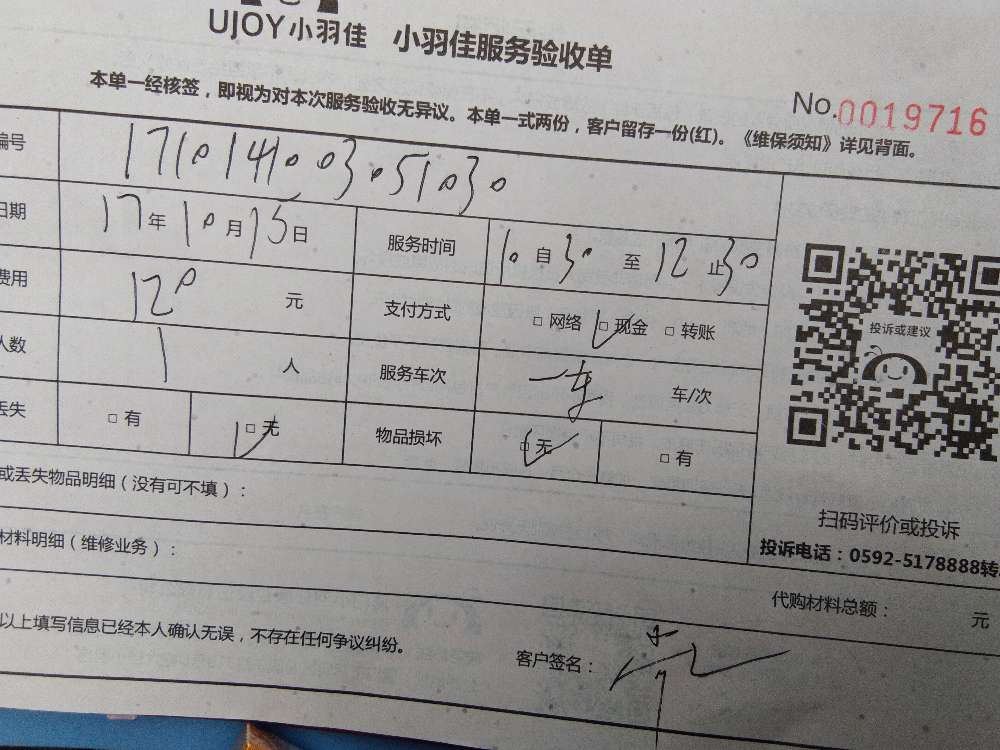 UJOY小羽佳 小羽佳服务验收单
本单一经核签，即视为对本次服务验收无异议。本单一式两份，客户留存一份(红)。《维保须知》详见背面。
No.0019716
编号 1710141003051030
日期 17年10月15日 服务时间 10自30至12止30
费用 120元 支付方式 □网络 □现金 □转账
人数 1人 服务车次 一车 车/次
丢失 □有 □无 物品损坏 □无 □有
投诉或建议
扫码评价或投诉
投诉电话：0592-5178888转
或丢失物品明细（没有可不填）：
材料明细（维修业务）：
代购材料总额： 元
以上填写信息已经本人确认无误，不存在任何争议纠纷。
客户签名：